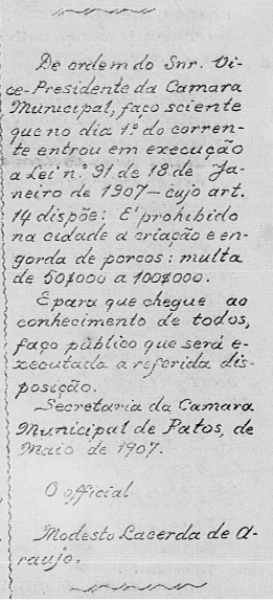 De ordem do Snr. Vi-
ce-Presidente da Camara
Municipal, faço sciente
que no dia 1º do corren-
te entrou em execução
a Lei n.º 91 de 18 de Ja-
neiro de 1907 - cujo art.
14 dispõe: E' prohibido
na cidade a criação e en-
gorda de porcos: multa
de 50$000 a 100$000.
E para que chegue ao
conhecimento de todos,
faço público que será e-
xecutada a referida dis-
posição.
Secretaria da Camara
Municipal de Patos, de
Maio de 1907.
O official
Modesto Lacerda de A-
raujo.